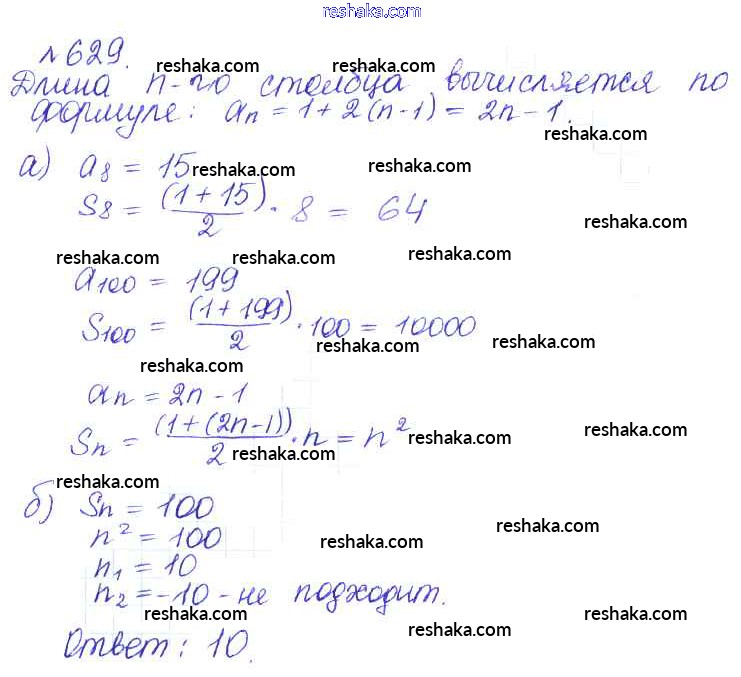 reshaka.com
№629. reshaka.com reshaka.com
Длина n-го столбца вычисляется по
формуле: aₙ = 1 + 2(n-1) = 2n - 1.
reshaka.com
а) a₈ = 15 reshaka.com reshaka.com
S₈ = (1 + 15)/2 · 8 = 64
reshaka.com
reshaka.com reshaka.com reshaka.com
a₁₀₀ = 199
S₁₀₀ = (1 + 199)/2 · 100 = 10000
reshaka.com reshaka.com
reshaka.com
aₙ = 2n - 1
Sₙ = (1 + (2n-1))/2 · n = n²
reshaka.com reshaka.com reshaka.com
reshaka.com
б) Sₙ = 100
n² = 100 reshaka.com reshaka.com
n₁ = 10
n₂ = -10 - не подходит.
reshaka.com reshaka.com reshaka.com
Ответ: 10.